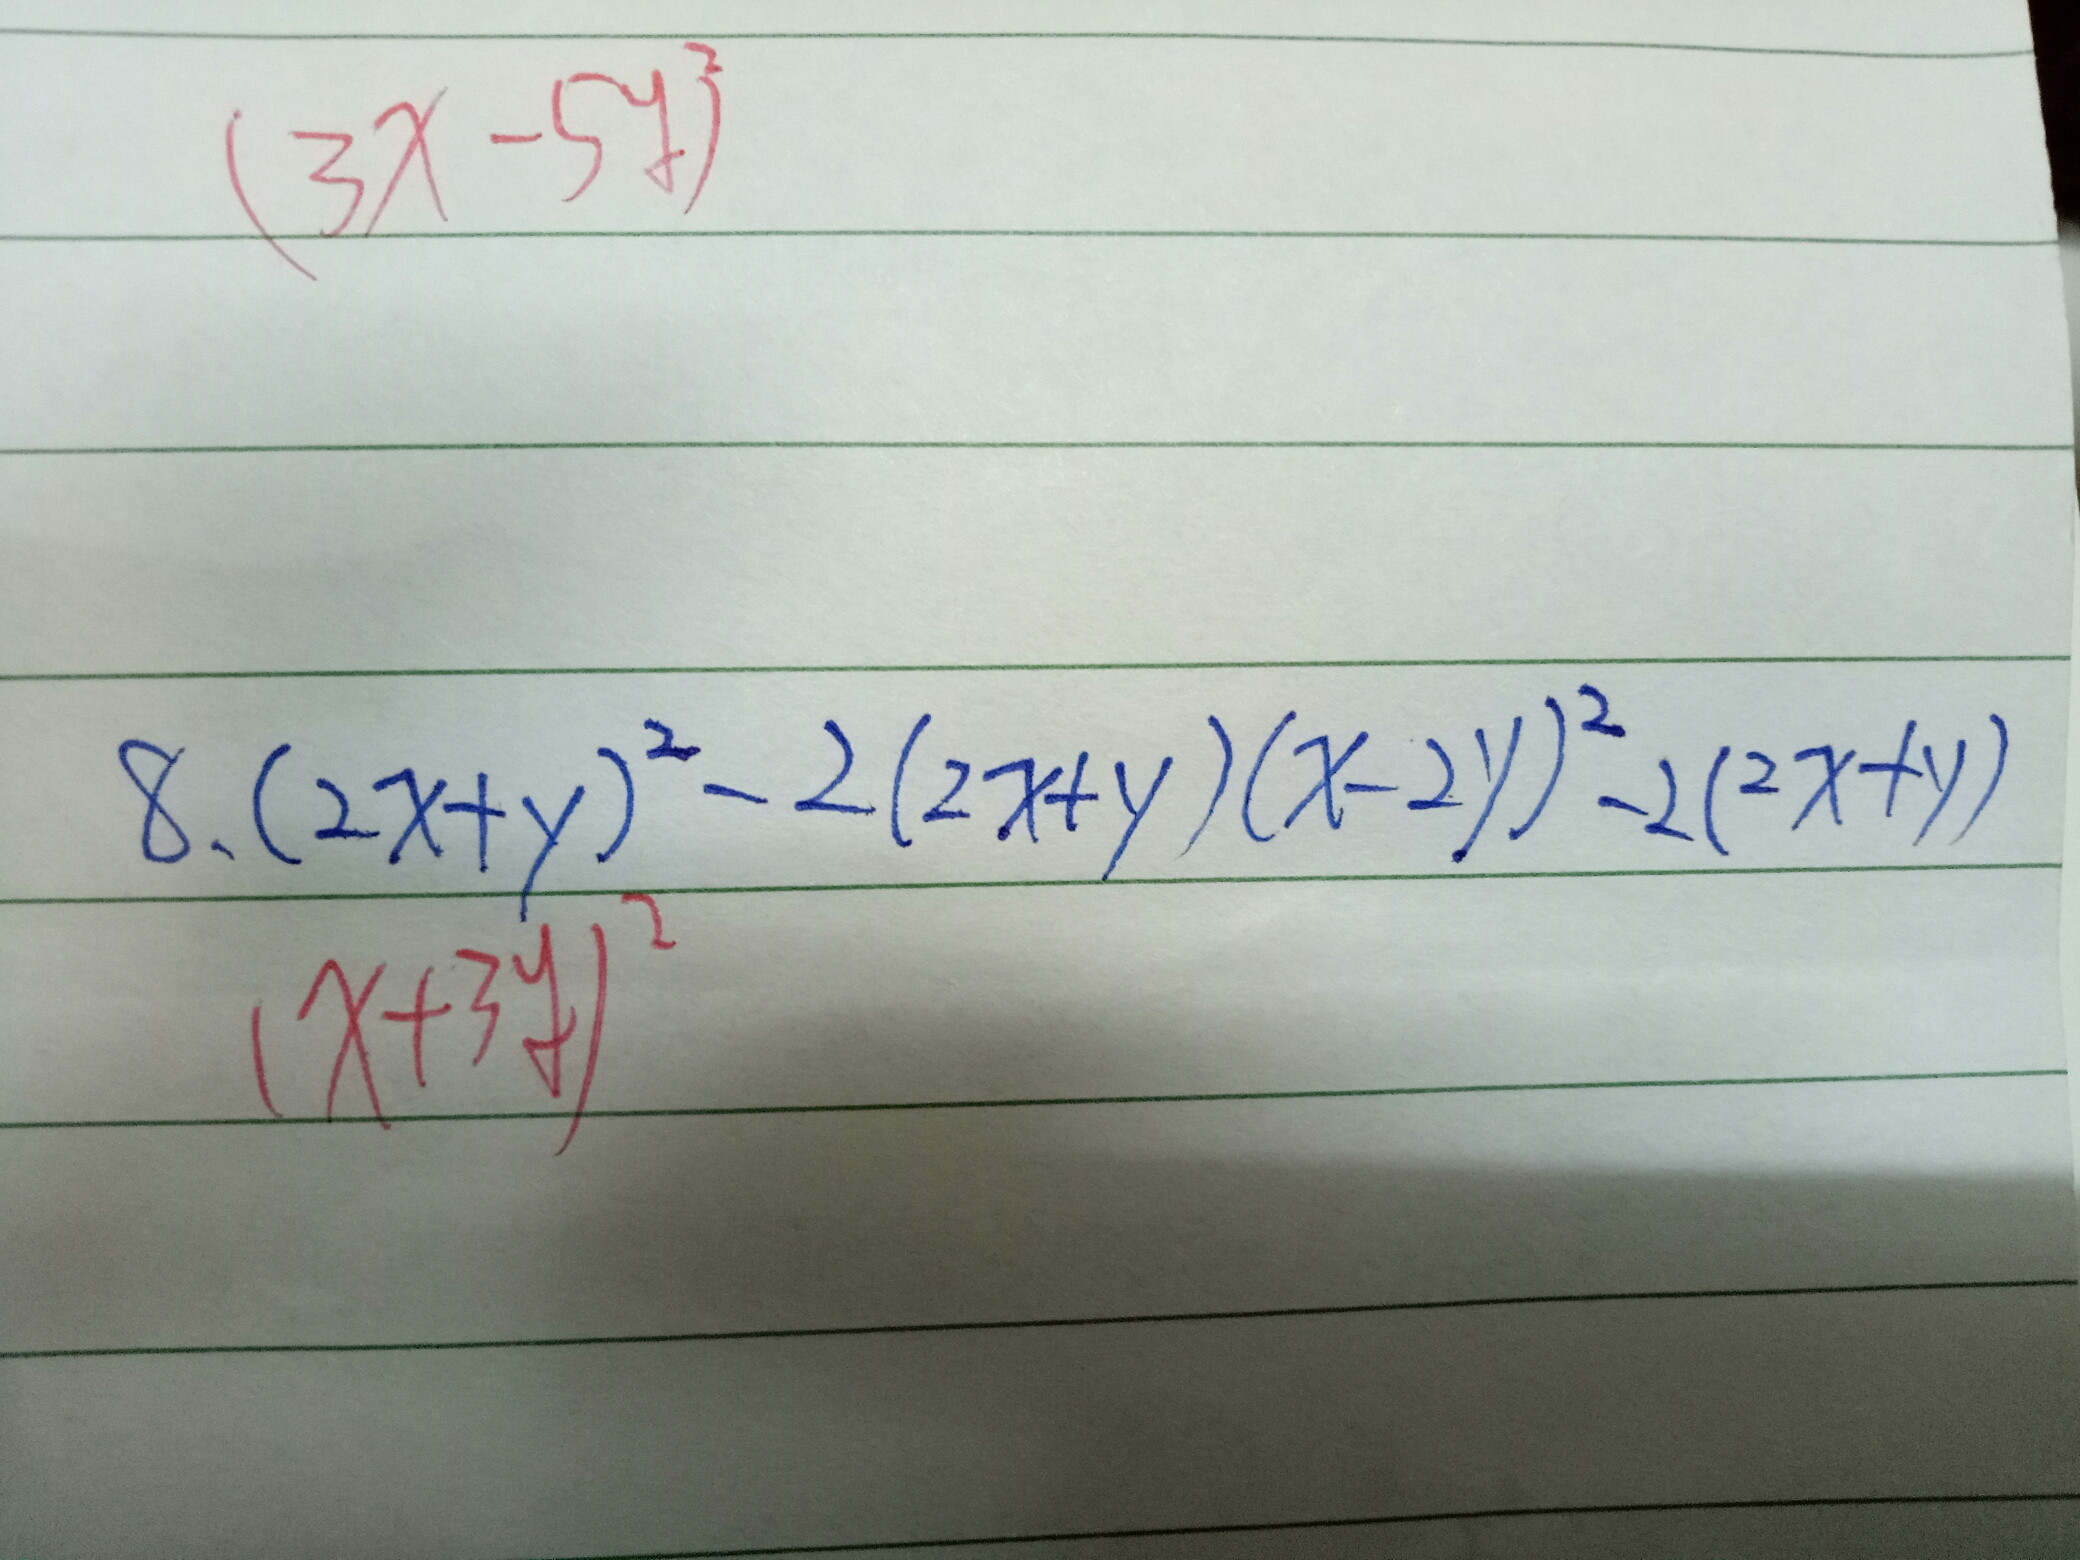 (3x-5y)²
8. (2x+y)²-2(2x+y)(x-2y)²-2(2x+y)
(x+3y)²